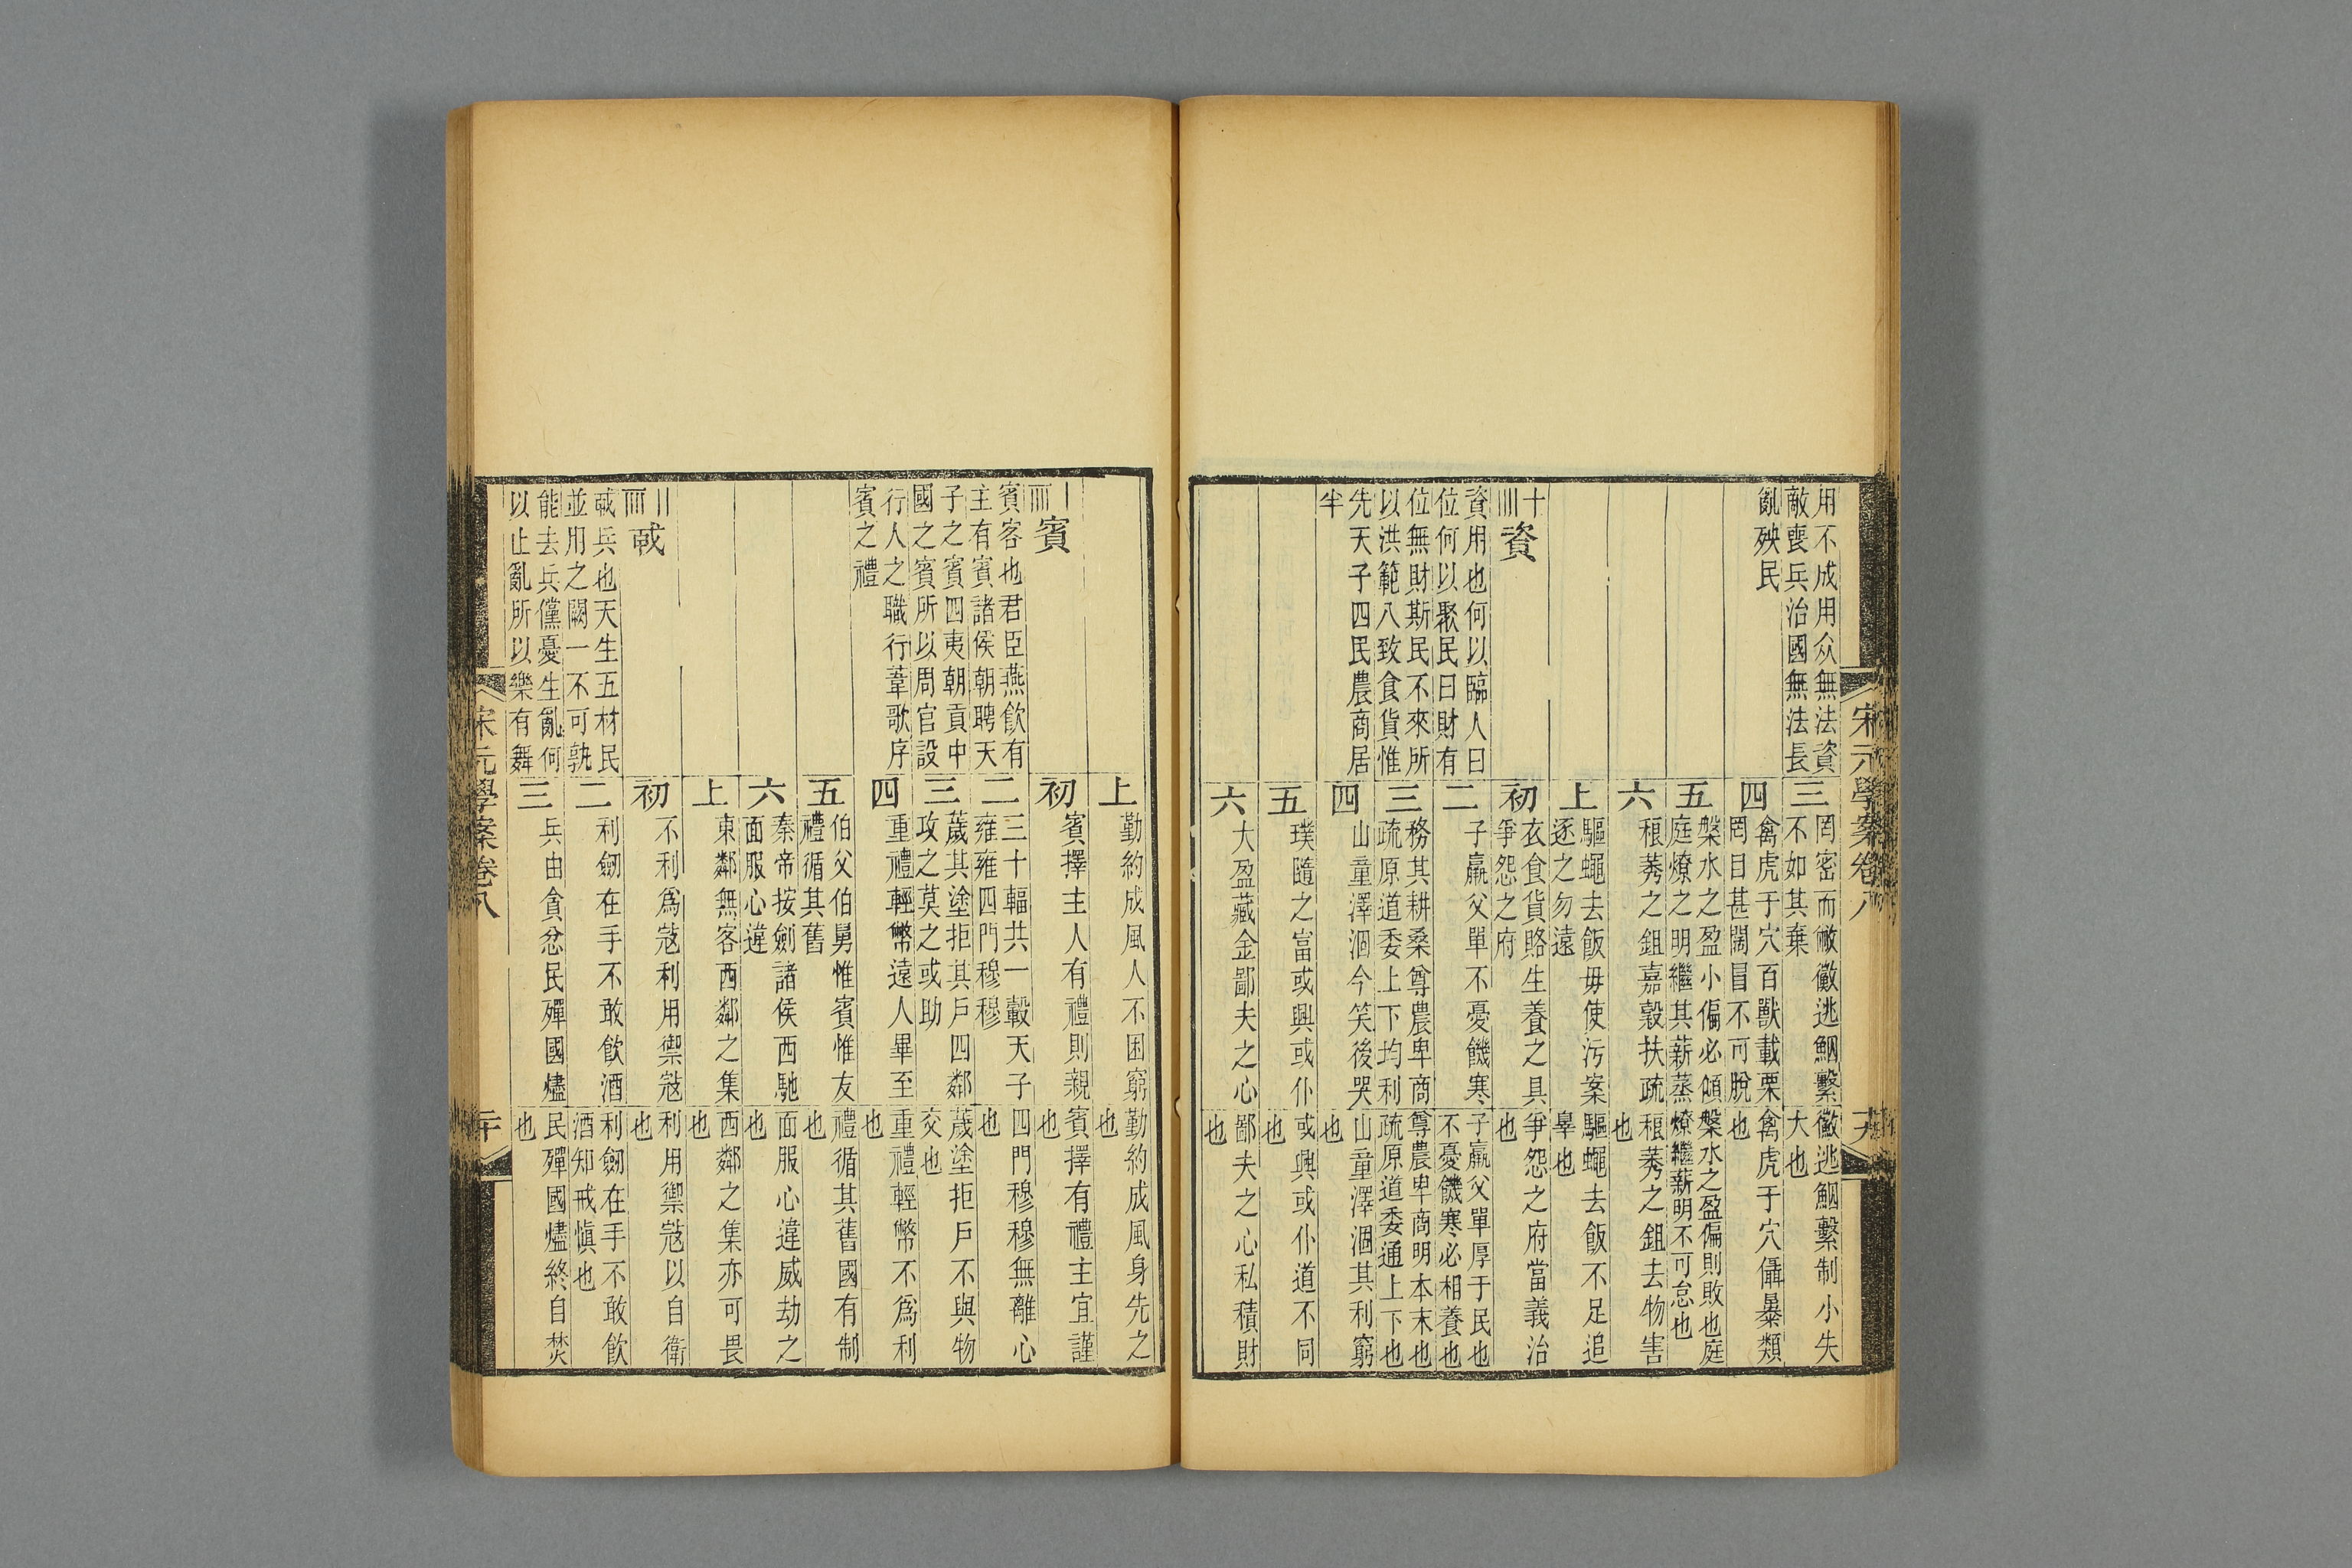 用不成用众無法資
敵喪兵治國無法長
亂殃民
資
資用也何以臨人曰
位何以聚民曰財有
位無財斯民不來所
以洪範八致食貨惟
先天子四民農商居
半
三
罔密而獙黴逃鯝繫
不如其棄
黴逃鯝繫制小失
大也
四
禽虎于穴百獸載栗
罔目甚闊冒不可脫
禽虎于穴僞暴類
也
五
槃水之盈小偏必傾
庭燎之明繼其薪蒸
槃水之盈偏則敗也庭
燎繼薪明不可怠也
六
稂莠之鉏嘉穀扶疏
稂莠之鉏去物害
也
上
驅蠅去飯毋使污案
逐之勿遠
驅蠅去飯不足追
辠也
初
衣食貨賂生養之具
爭怨之府
爭怨之府當義治
也
二
子羸父單不憂饑寒
子羸父單厚于民也
不憂饑寒必相養也
三
務其耕桑尊農卑商
疏原道委上下均利
尊農卑商明本末也
疏原道委通上下也
四
山童澤涸今笑後哭
山童澤涸其利窮
也
五
璞隨之崫或興或仆
或興或仆道不同
也
六
大盈藏金鄙夫之心
鄙夫之心私積財
也
宋元學案卷八
上
勤約成風人不困窮
勤約成風身先之
也
賓
賓客也君臣燕飲有
主有賓諸侯朝聘天
子之賓四夷朝貢中
國之賓所以周官設
行人之職行葦歌序
賓之禮
初
賓擇主人有禮則親
賓擇有禮主宜謹
也
二
三十輻共一轂天子
雍雍四門穆穆
四門穆穆無離心
也
三
蕆其塗拒其戶四鄰
攻之莫之或助
蕆塗拒戶不與物
交也
四
重禮輕幣遠人畢至
重禮輕幣不爲利
也
五
伯父伯舅惟賓惟友
禮循其舊
禮循其舊國有制
也
六
秦帝按劍諸侯西馳
面服心違
面服心違威劫之
也
上
東鄰無客西鄰之集
西鄰之集亦可畏
也
戫
戫兵也天生五材民
並用之闕一不可孰
能去兵儻憂生亂何
以止亂所以樂有舞
初
不利爲寇利用禦寇
利用禦寇以自衛
也
二
利劒在手不敢飲酒
利劒在手不敢飲
酒知戒愼也
三
兵由貪忿民殫國燼
民殫國燼終自焚
也
宋元學案卷八